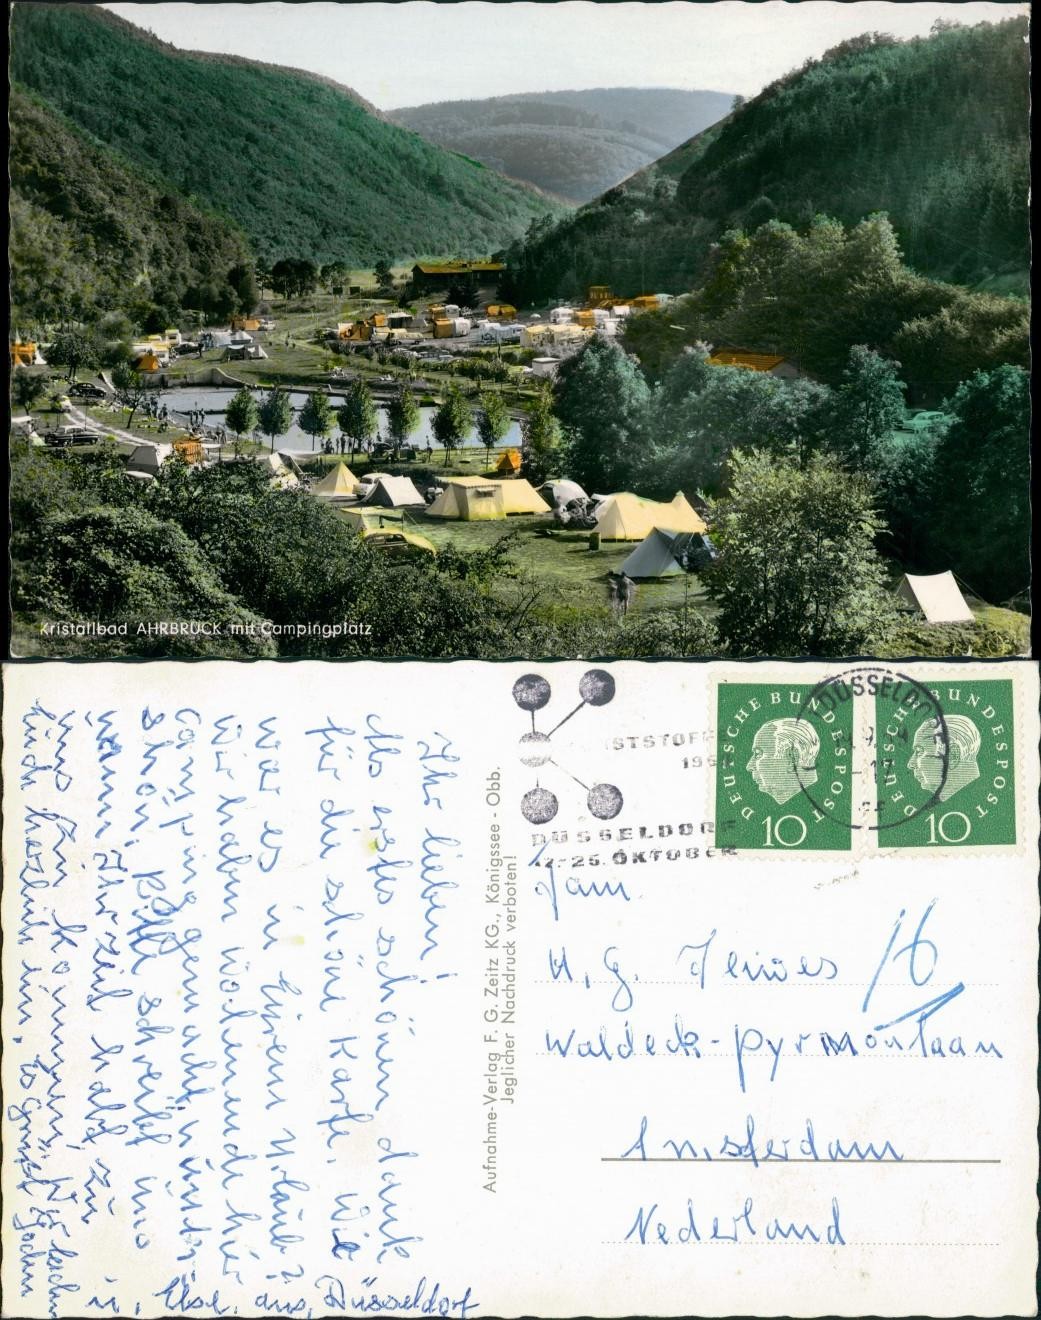 Kristallbad AHRBRÜCK mit Campingplatz
Ihr lieben!
Als erstes schönen dank
für die schöne Karte. Wie
war es in Euren Urlaub?
Wir haben wochenende hier
Camping gemacht, 
schön. Bitte schreibt uns
wann Ihr Zeit habt zu
uns zu kommen, Wir laden
Euch herzlich ein, es grüßt Jochen
u. Else. aus, Düsseldorf
Aufnahme-Verlag F. G. Zeitz KG., Königssee - Obb.
Jeglicher Nachdruck verboten!
DÜSSELDORF
OKTOBER
DÜSSELDORF
DEUTSCHE BUNDESPOST
10
DEUTSCHE BUNDESPOST
10
Fam.
H. G.
16
Waldeck-Pyrmontlaan
Amsterdam
Nederland